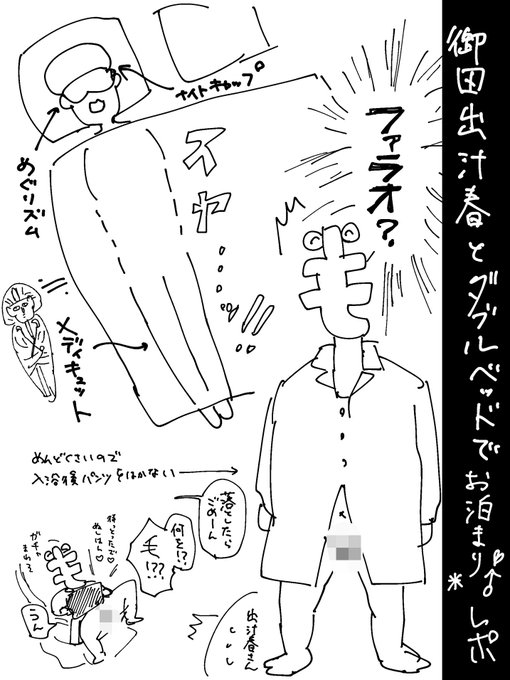 御田出汁春とダブルベッドでお泊まりレポ
ファラオ?
ナイトキャップ
めぐリズム
スヤ……
メディキュット
めんどくさいので
入浴後パンツをはかない
落としたら
ごめーん
何を!?
毛!??
ガチャ
うん
出汁春さん